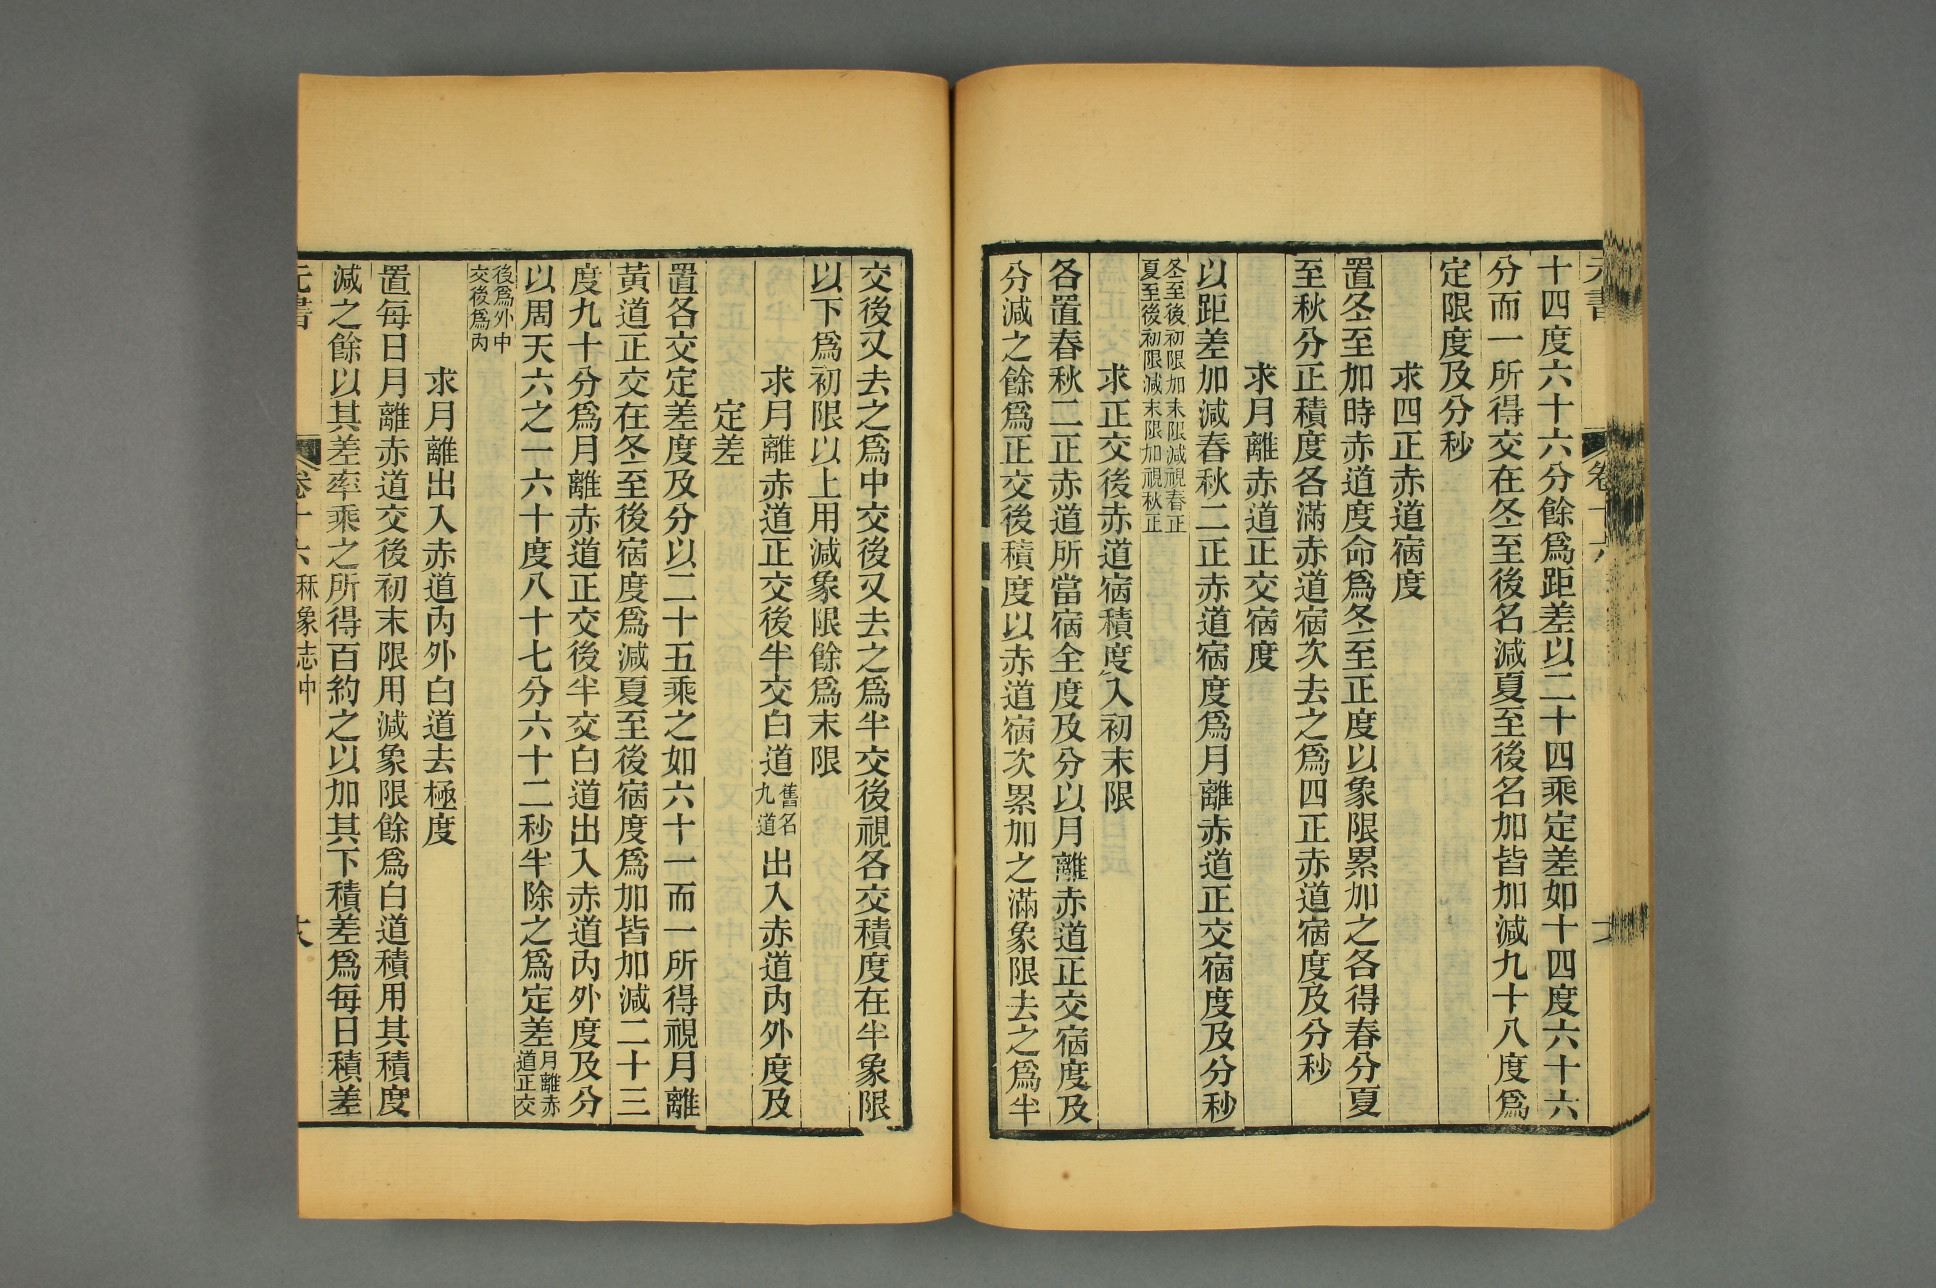 元書 卷十六
十四度六十六分餘爲距差以二十四乘定差如十四度六十六
分而一所得交在冬至後名減夏至後名加皆加減九十八度爲
定限度及分秒
求四正赤道宿度
置冬至加時赤道度命爲冬至正度以象限累加之各得春分夏
至秋分正積度各滿赤道宿次去之爲四正赤道宿度及分秒
求月離赤道正交宿度
以距差加減春秋二正赤道宿度爲月離赤道正交宿度及分秒
冬至後初限加末限減視春正
夏至後初限減末限加視秋正
求正交後赤道宿積度入初末限
各置春秋二正赤道所當宿全度及分以月離赤道正交宿度及
分減之餘爲正交後積度以赤道宿次累加之滿象限去之爲半
交後又去之爲中交後又去之爲半交後視各交積度在半象限
以下爲初限以上用減象限餘爲末限
求月離赤道正交後半交白道舊名九道出入赤道內外度及
定差
置各交定差度及分以二十五乘之如六十一而一所得視月離
黃道正交在冬至後宿度爲減夏至後宿度爲加皆加減二十三
度九十分爲月離赤道正交後半交白道出入赤道內外度及分
以周天六之一六十度八十七分六十二秒半除之爲定差月離赤道正交
後爲外中交後爲內
求月離出入赤道內外白道去極度
置每日月離赤道交後初末限用減象限餘爲白道積用其積度
減之餘以其差率乘之所得百約之以加其下積差爲每日積差
元書 卷十六 秝象志中